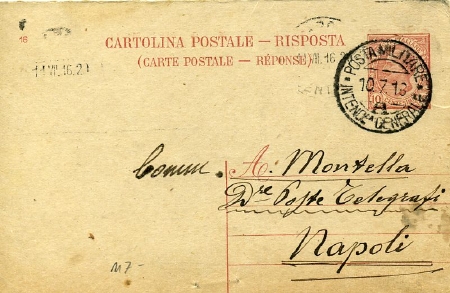 16
CARTOLINA POSTALE – RISPOSTA
(CARTE POSTALE – RÉPONSE)
14 VII. 16. 21
VII. 16
POSTA MILITARE
10.7.16
A
INTENDza GENERALE
10
Comm. A. Montella
Dre Poste Telegrafi
Napoli
117-